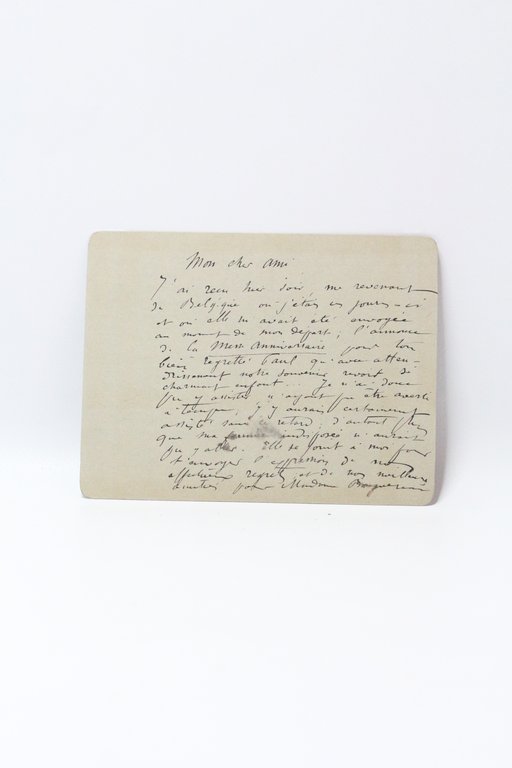 Mon cher ami
J'ai reçu hier soir, me revenant
de Belgique où j'étais ces jours-ci
et où elle m'avait été envoyée
au moment de mon départ, l'annonce
de la Messe Anniversaire pour ton
bien regretté Paul qu'avec atten-
drissement notre souvenir revoit si
charmant enfant... Je n'ai donc
pu y assister n'ayant pu être averti
à temps; j'y aurais certainement
assisté sans ce retard; d'autant plus
que ma indisposée n'aurait
pu y aller. Elle se joint à moi pour
t'envoyer l'expression de nos
affectueux regrets et de nos meilleures
amitiés pour Madame Bouguereau